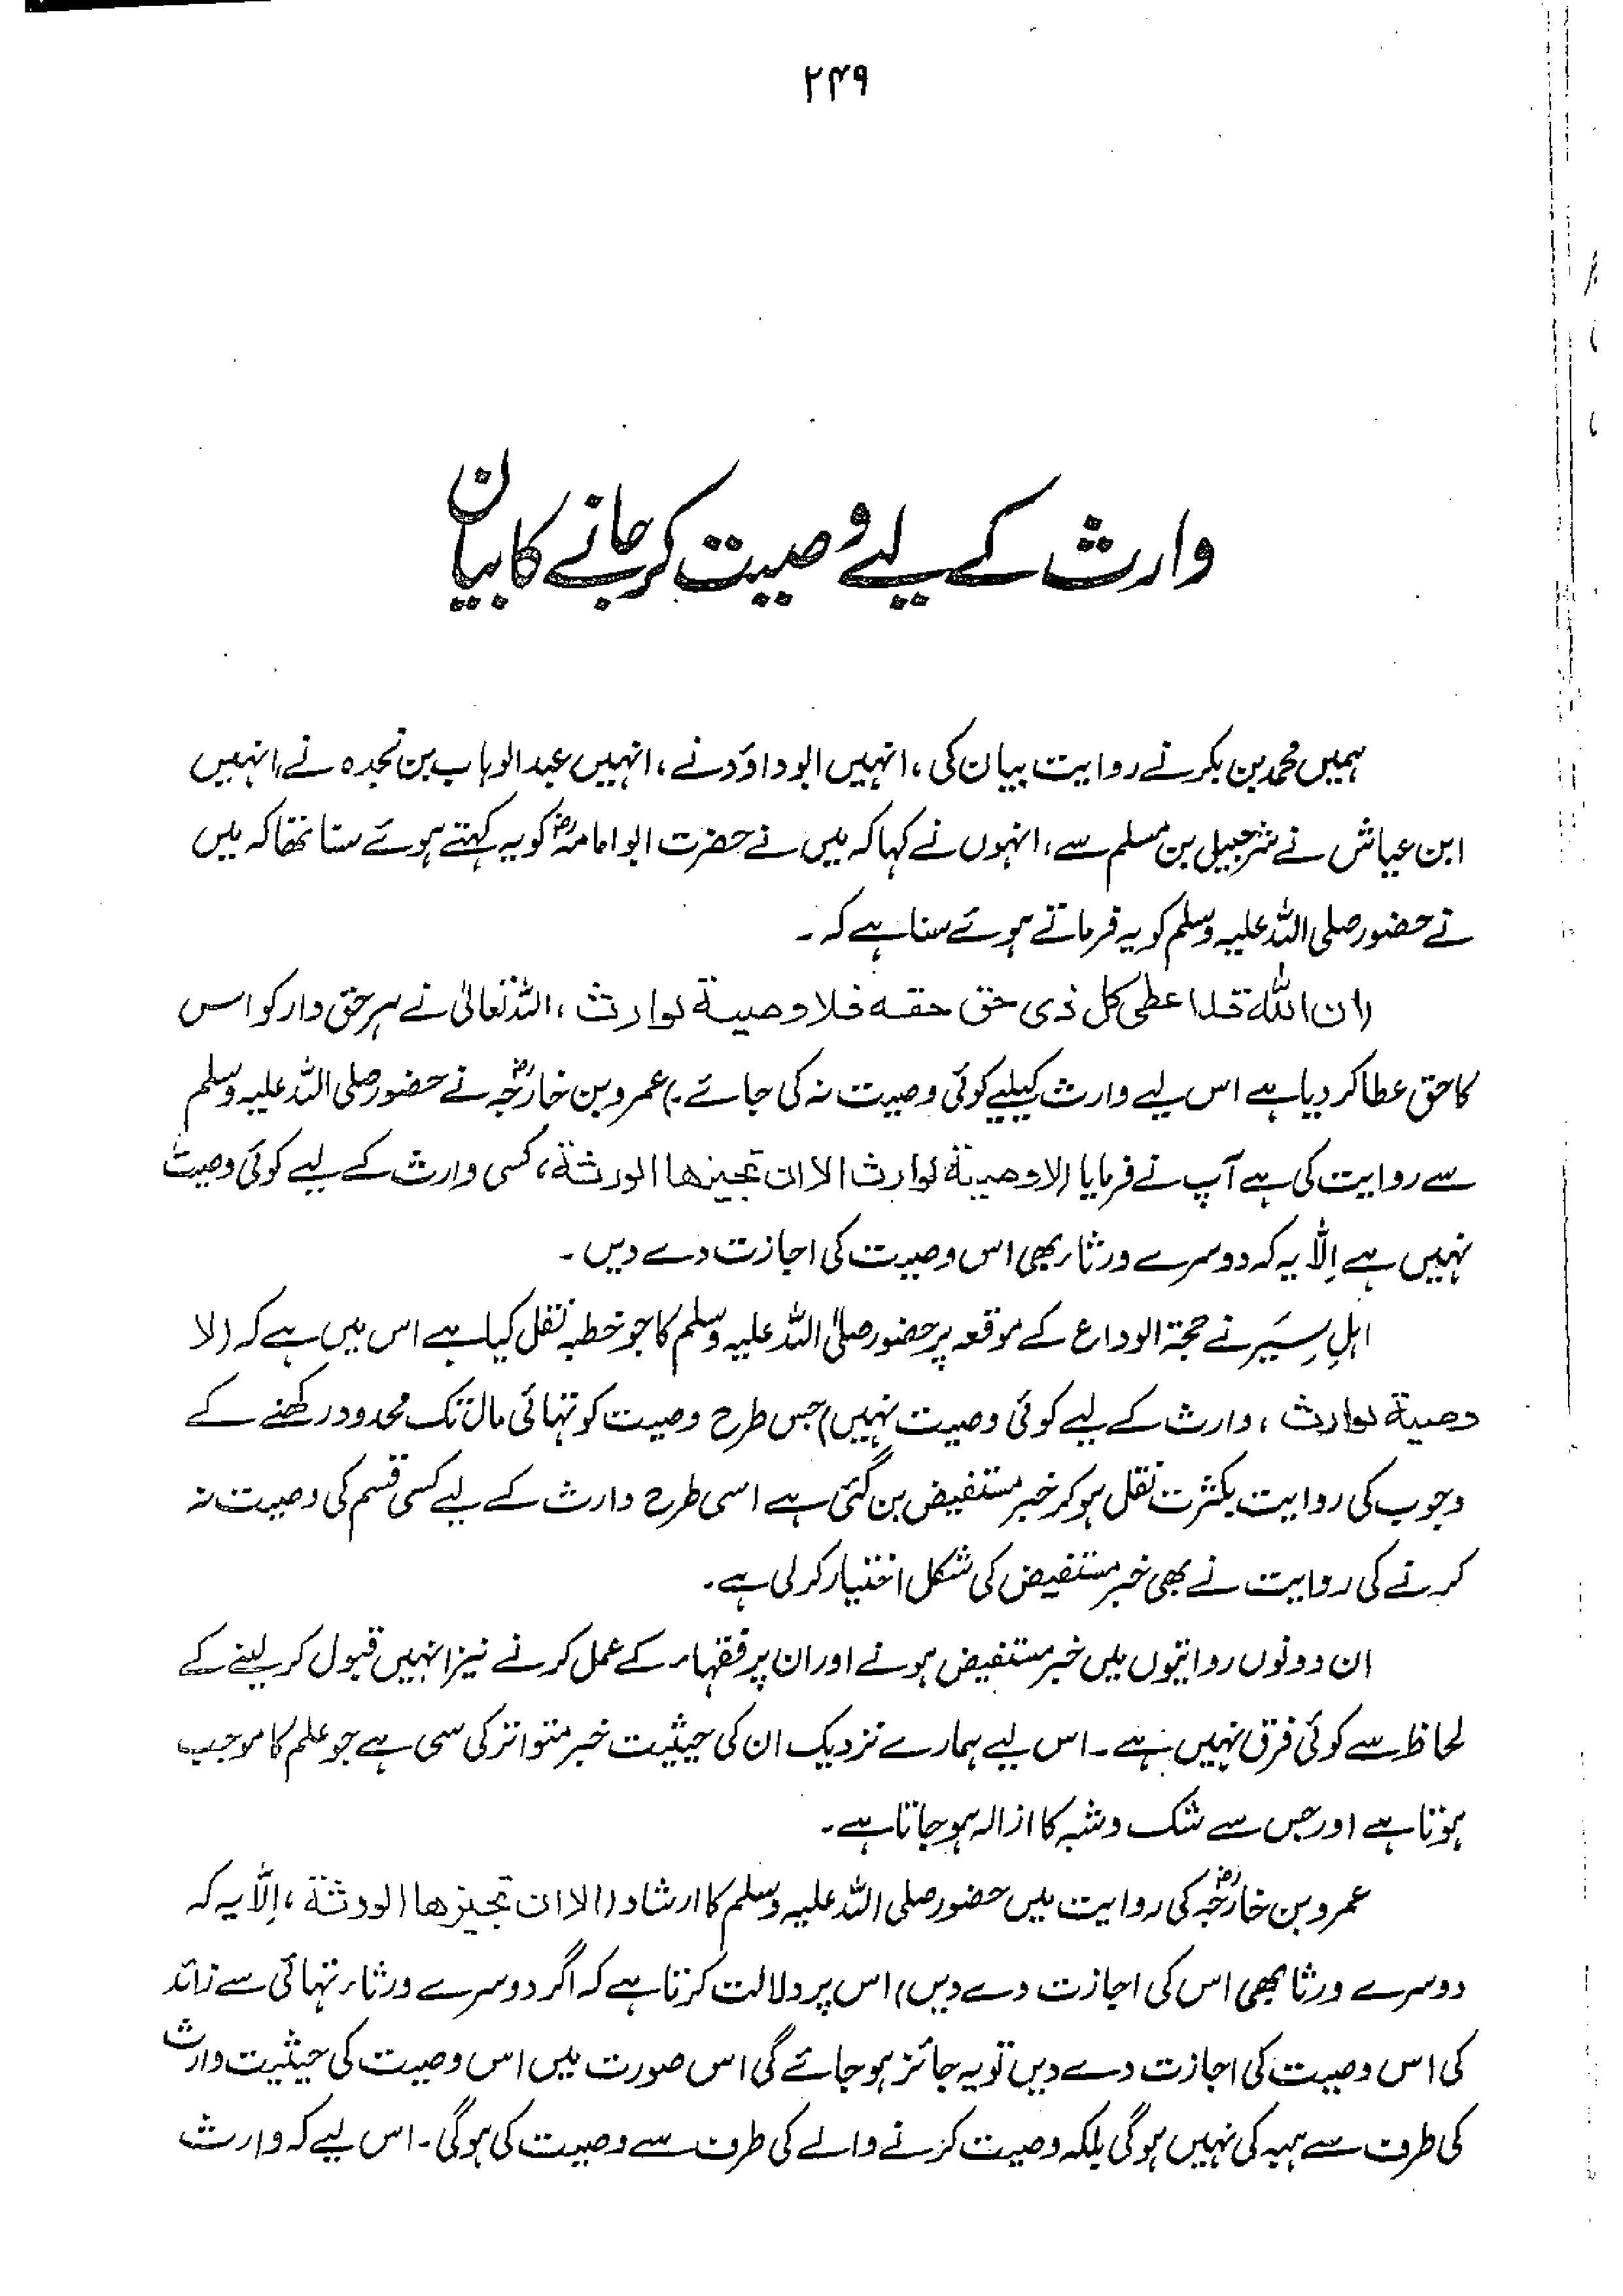 ۲۴۹
وارث کے لیے وصیت کر جانے کا بیان
ہمیں محمد بن بکر نے روایت بیان کی، انہیں ابو داؤد نے، انہیں عبد الوہاب بن نجدہ نے، انہیں
ابن عیاش نے شرجیل بن مسلم سے، انہوں نے کہا کہ میں نے حضرت ابو امامہؓ کو یہ کہتے ہوئے سنا تھا کہ میں
نے حضور صلی اللہ علیہ وسلم کو یہ فرماتے ہوئے سنا ہے کہ ۔
(ان اللہ قد اعطی کل ذی حق حقہ فلا وصیۃ لوارث، اللہ تعالیٰ نے ہر حق دار کو اس
کا حق عطا کر دیا ہے اس لیے وارث کیلیے کوئی وصیت نہ کی جائے ۔) عمرو بن خارجہؓ نے حضور صلی اللہ علیہ وسلم
سے روایت کی ہے آپ نے فرمایا (لا وصیۃ لوارث الا ان تجیزھا الورثۃ، کسی وارث کے لیے کوئی وصیت
نہیں ہے اِلّا یہ کہ دوسرے ورثاء بھی اس وصیت کی اجازت دے دیں ۔
اہلِ سِیَر نے حجۃ الوداع کے موقعہ پر حضور صلی اللہ علیہ وسلم کا جو خطبہ نقل کیا ہے اس میں ہے کہ (لا
وصیۃ لوارث، وارث کے لیے کوئی وصیت نہیں) جس طرح وصیت کو تہائی مال تک محدود رکھنے کے
وجوب کی روایت بکثرت نقل ہو کر خبر مستفیض بن گئی ہے اسی طرح وارث کے لیے کسی قسم کی وصیت نہ
کرنے کی روایت نے بھی خبر مستفیض کی شکل اختیار کر لی ہے۔
ان دونوں روایتوں میں خبر مستفیض ہونے اور ان پر فقہاء کے عمل کرنے نیز انہیں قبول کر لینے کے
لحاظ سے کوئی فرق نہیں ہے ۔ اس لیے ہمارے نزدیک ان کی حیثیت خبر متواتر کی سی ہے جو علم کا موجب
ہوتا ہے اور جس سے شک و شبہ کا ازالہ ہو جاتا ہے۔
عمرو بن خارجہؓ کی روایت میں حضور صلی اللہ علیہ وسلم کا ارشاد (الا ان تجیزھا الورثۃ، اِلّا یہ کہ
دوسرے ورثا بھی اس کی اجازت دے دیں) اس پر دلالت کرتا ہے کہ اگر دوسرے ورثاء تہائی سے زائد
کی اس وصیت کی اجازت دے دیں تو یہ جائز ہو جائے گی اس صورت میں اس وصیت کی حیثیت وارث
کی طرف سے ہبہ کی نہیں ہو گی بلکہ وصیت کرنے والے کی طرف سے وصیت کی ہو گی ۔ اس لیے کہ وارث